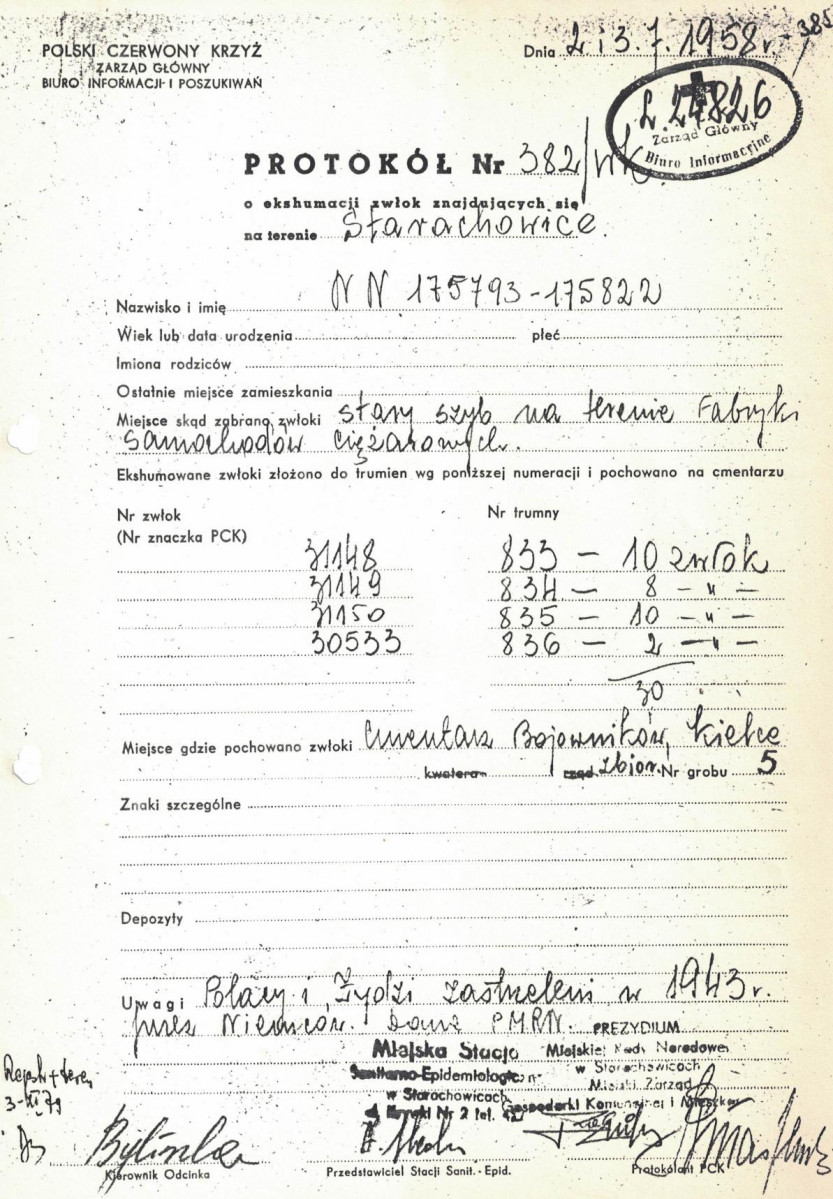 POLSKI CZERWONY KRZYŻ
ZARZĄD GŁÓWNY
BIURO INFORMACJI I POSZUKIWAŃ
Dnia 2 i 3.7.1958 r.
385
L. 24826
Zarząd Główny
Biuro Informacyjne
PROTOKÓŁ Nr 382/
o ekshumacji zwłok znajdujących się
na terenie Starachowice.
Nazwisko i imię NN 175793-175822
Wiek lub data urodzenia płeć
Imiona rodziców
Ostatnie miejsce zamieszkania
Miejsce skąd zabrano zwłoki stary szyb na terenie Fabryki
Samochodów Ciężarowych.
Ekshumowane zwłoki złożono do trumien wg poniższej numeracji i pochowano na cmentarzu
Nr zwłok Nr trumny
(Nr znaczka PCK)
31148 833 — 10 zwłok
31149 834 — 8 — „ —
31150 835 — 10 — „ —
30533 836 — 2 — „ —
30
Miejsce gdzie pochowano zwłoki Cmentarz Bojowników, Kielce
kwatera rząd zbior. Nr grobu 5
Znaki szczególne
Depozyty
Uwagi Polacy i Żydzi zastrzeleni w 1943 r.
przez Niemców. Dane PMRN.
PREZYDIUM
Miejska Stacja Miejskiej Rady Narodowej
Sanitarno-Epidemiologiczn w Starachowicach
w Starachowicach Miejski Zarząd
Nr 2 tel. Gospodarki Komunalnej i Mieszkan
3-XI 79
Kierownik Odcinka
Przedstawiciel Stacji Sanit.-Epid.
Protokolant PCK